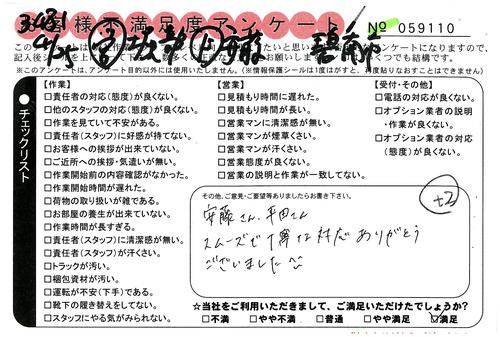 お客様不満足度アンケート
No 059110
記入後
※このアンケートは、アンケート目的以外には使用いたしません。(※情報保護シールは1度がすと、再度貼りなおすことはできません)
チェックリスト
【作業】
□責任者の対応(態度)が良くない。
□他のスタッフの対応(態度)が良くない。
□作業を見ていて不安がある。
□責任者(スタッフ)に好感が持てない。
□お客様への挨拶が出来ていない。
□ご近所への挨拶・気遣いが無い。
□作業開始前の内容確認がなかった。
□作業開始時間が遅れた。
□荷物の取り扱いが雑である。
□お部屋の養生が出来ていない。
□作業時間が長すぎる。
□責任者(スタッフ)に清潔感が無い。
□責任者(スタッフ)が汗くさい。
□トラックが汚い。
□梱包資材が汚い。
□運転が不安(下手)である。
□靴下の履き替えをしてない。
□スタッフにやる気がみられない。
【営業】
□見積もり時間に遅れた。
□見積もり時間が長い。
□営業マンに清潔感が無い。
□営業マンが煙草くさい。
□営業マンが汗くさい。
□営業態度が良くない。
□営業の説明と作業が一致してない。
【受付・その他】
□電話の対応が良くない。
□オプション業者の説明
・作業が良くない。
□オプション業者の対応
(態度)が良くない。
その他、ご意見・ご要望等ありましたらお書き下さい。
+2
安藤さん、平田さん
スムーズで丁寧な対応ありがとう
ございました
☆当社をご利用いただきまして、ご満足いただけたでしょうか?
□不満 □やや不満 □普通 □やや満足 ☑満足